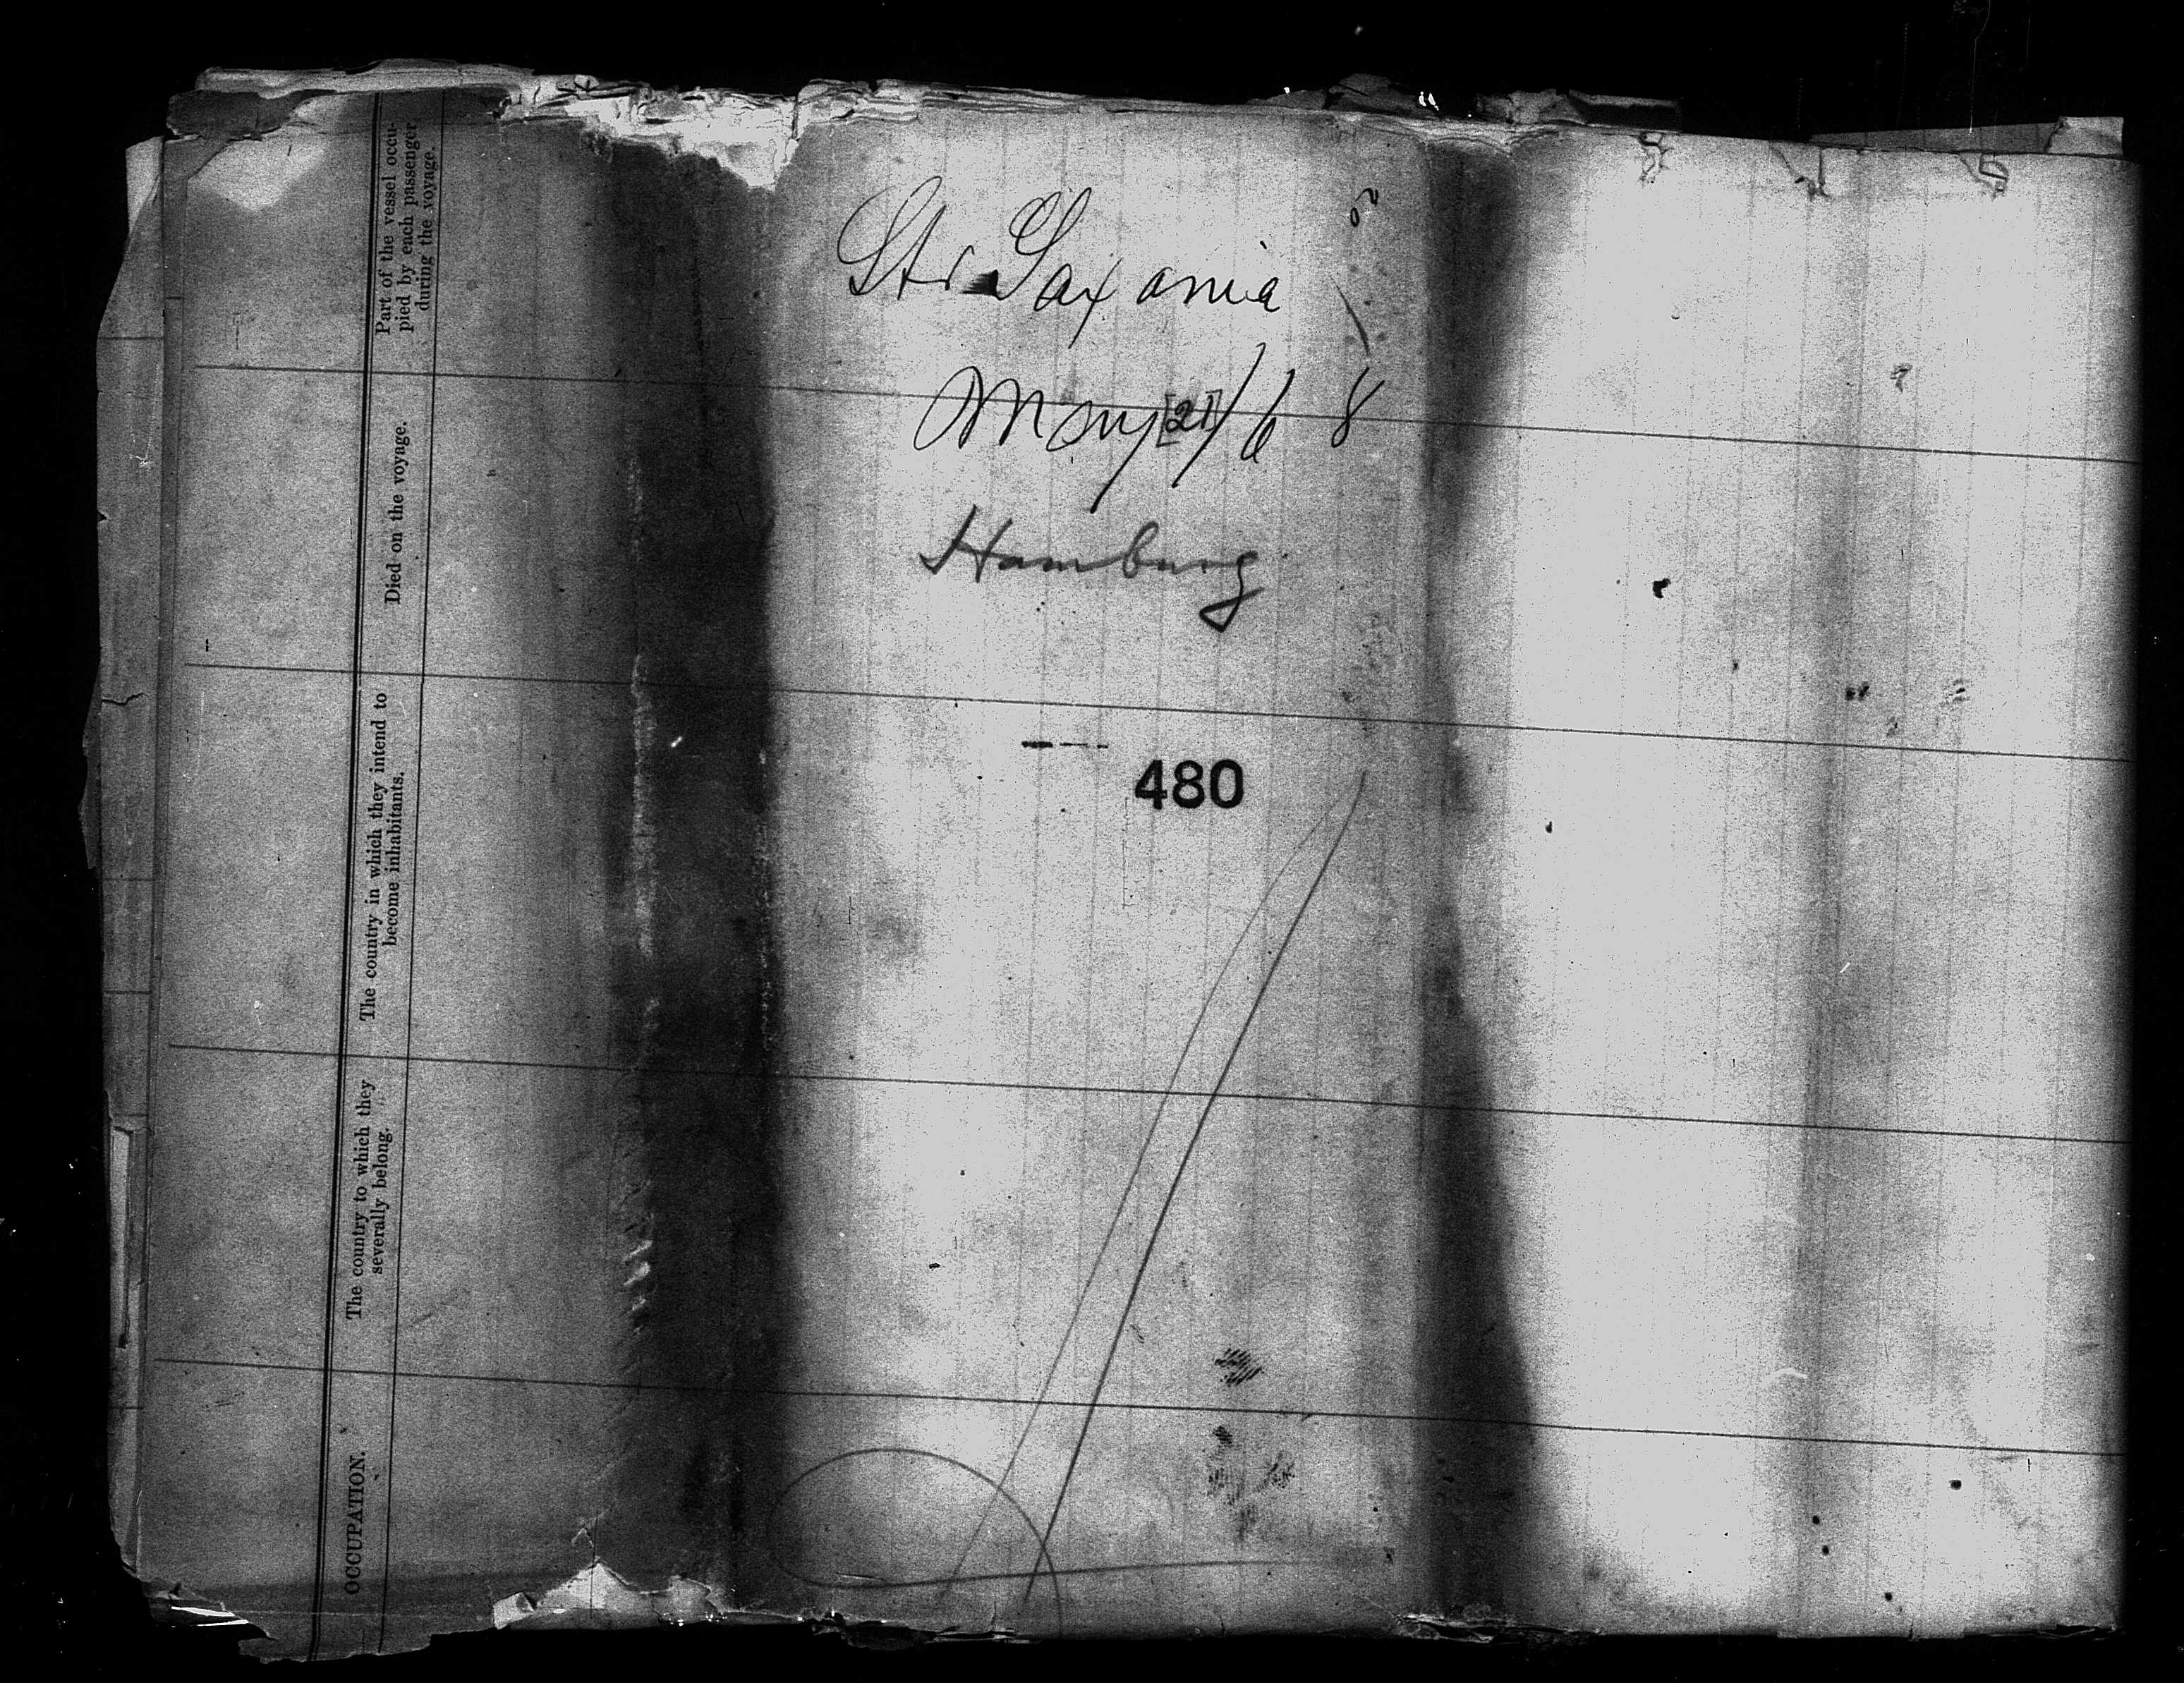 Str Saxonia
May [21]/68
Hamburg
480
Part of the vessel occu-
pied by each passenger
during the voyage.
Died on the voyage.
The country in which they intend to
become inhabitants.
The country to which they
severally belong.
OCCUPATION.